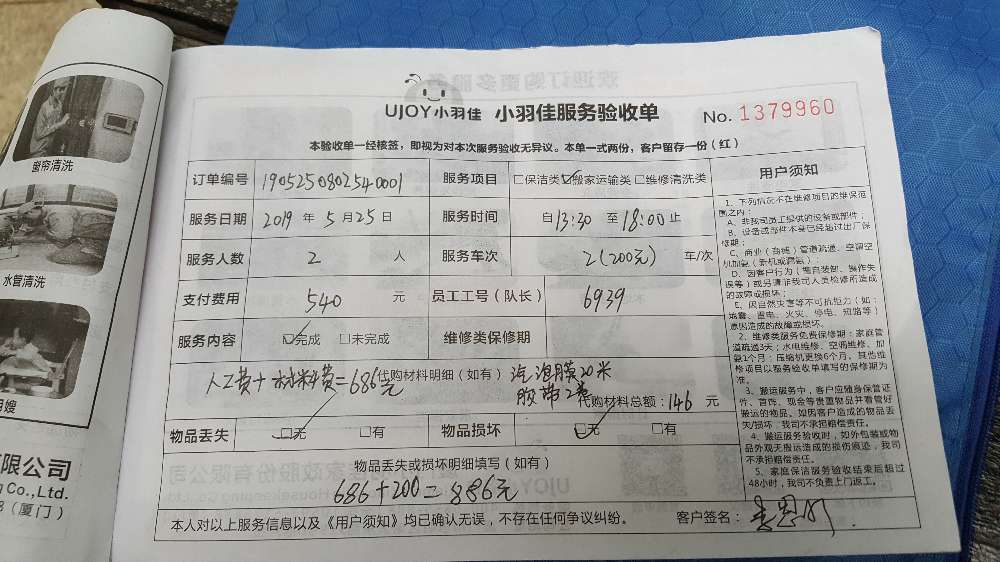 窗帘清洗
水管清洗
有限公司
g Co.,Ltd.
8（厦门）
UJOY小羽佳 小羽佳服务验收单 No. 1379960
本验收单一经核签，即视为对本次服务验收无异议。本单一式两份，客户留存一份（红）
订单编号 1905250802540001 服务项目 □保洁类 □搬家运输类 □维修清洗类
服务日期 2019 年 5 月 25 日 服务时间 自 13:30 至 18:00 止
服务人数 2 人 服务车次 2(200元) 车/次
支付费用 540 元 员工工号（队长） 6939
服务内容 □完成 □未完成 维修类保修期
人工费+材料费=686元 代购材料明细（如有） 汽泡膜20米
胶带2卷 代购材料总额：146 元
物品丢失 □无 □有 物品损坏 □无 □有
物品丢失或损坏明细填写（如有）
686+200=886元
本人对以上服务信息以及《用户须知》均已确认无误，不存在任何争议纠纷。 客户签名：
用户须知
1、下列情况不在维修项目的维保范
围之内：
A、非我司员工提供的设备或部件；
B、设备或部件本身已经超过出厂保
修期；
C、商业（商铺）管道疏通、空调空
机加氨（新机或漏氨）；
D、因客户行为（擅自装卸、操作失
误等）或另请非我司人员检修所造成
的故障或损坏；
E、因自然灾害等不可抗拒力（如：
地震、雷电、火灾、停电、短路等）
原因造成的故障或损坏。
2、维修类服务免费保修期：家庭管
道疏通3天；水电维修、空调维修、加
氨1个月；压缩机更换6个月。其他维
修项目以服务验收单填写的保修期为
准。
3、搬运服务中，客户应随身保管证
件、首饰、现金等贵重物品并看管好
搬运的物品。如因客户造成的物品丢
失/损坏，我司不承担赔偿责任。
4、搬运服务验收时，如外包装或物
品外观无搬运造成的损伤痕迹，我司
不承担赔偿责任。
5、家庭保洁服务验收结束后超过
48小时，我司不负责上门返工。